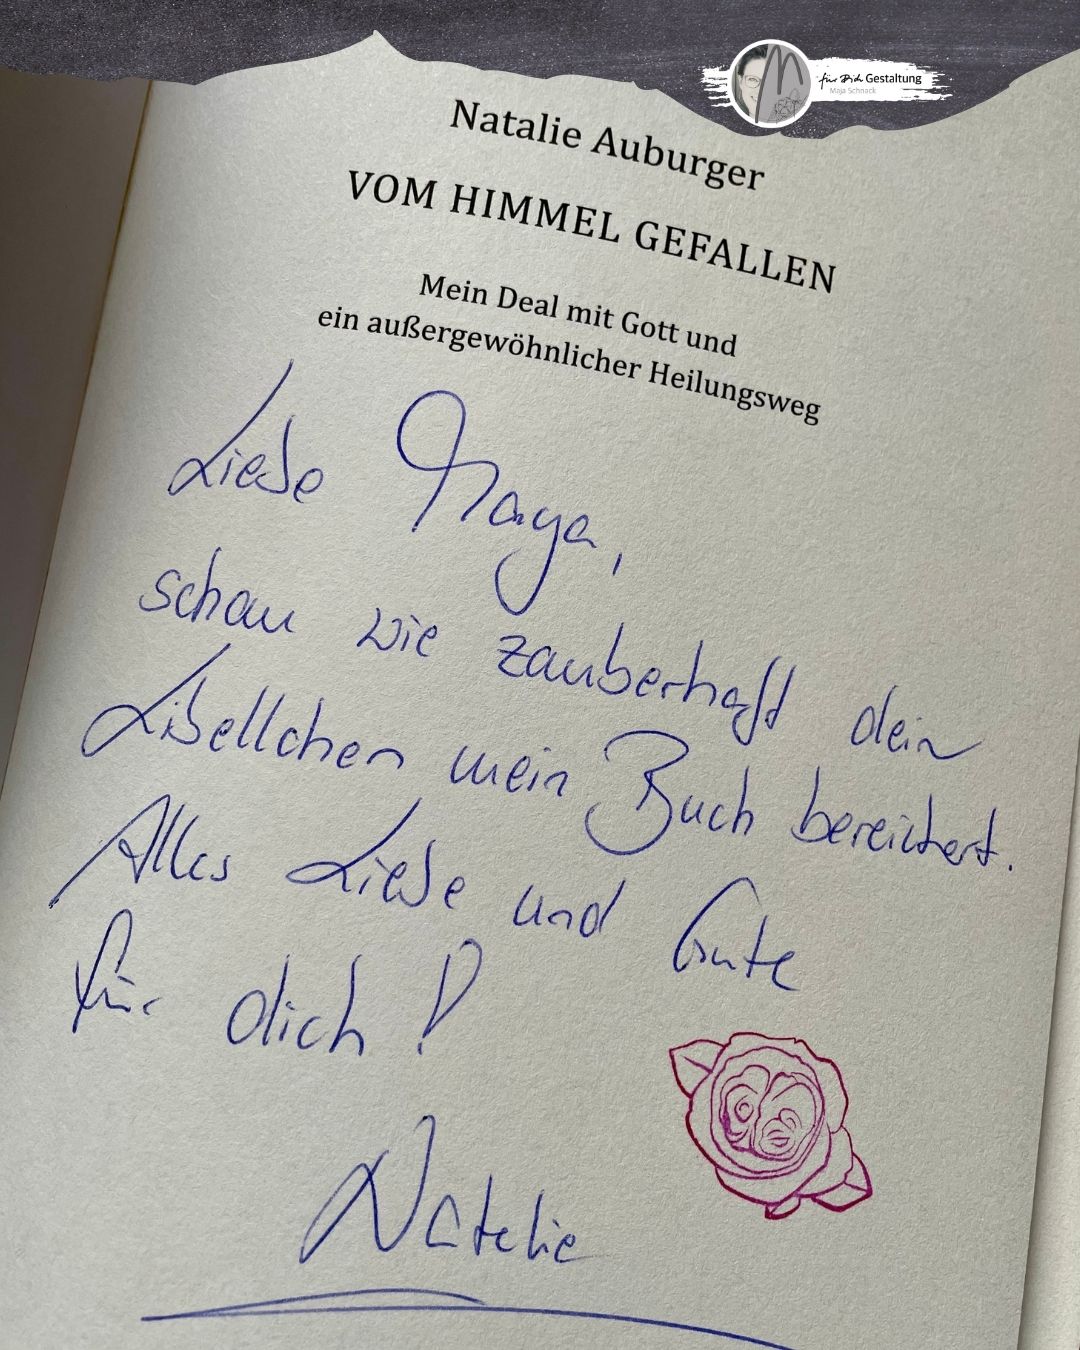 für Dich Gestaltung
Maja Schnack
Natalie Auburger
VOM HIMMEL GEFALLEN
Mein Deal mit Gott und
ein außergewöhnlicher Heilungsweg
Liebe Maya,
schau wie zauberhaft dein
Libellchen mein Buch bereichert.
Alles Liebe und Gute
für dich!
Natalie